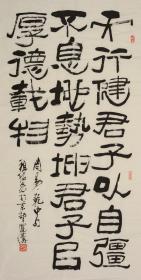 天行健君子以自彊
不息地勢坤君子㠯
厚德載物
周易乾中句